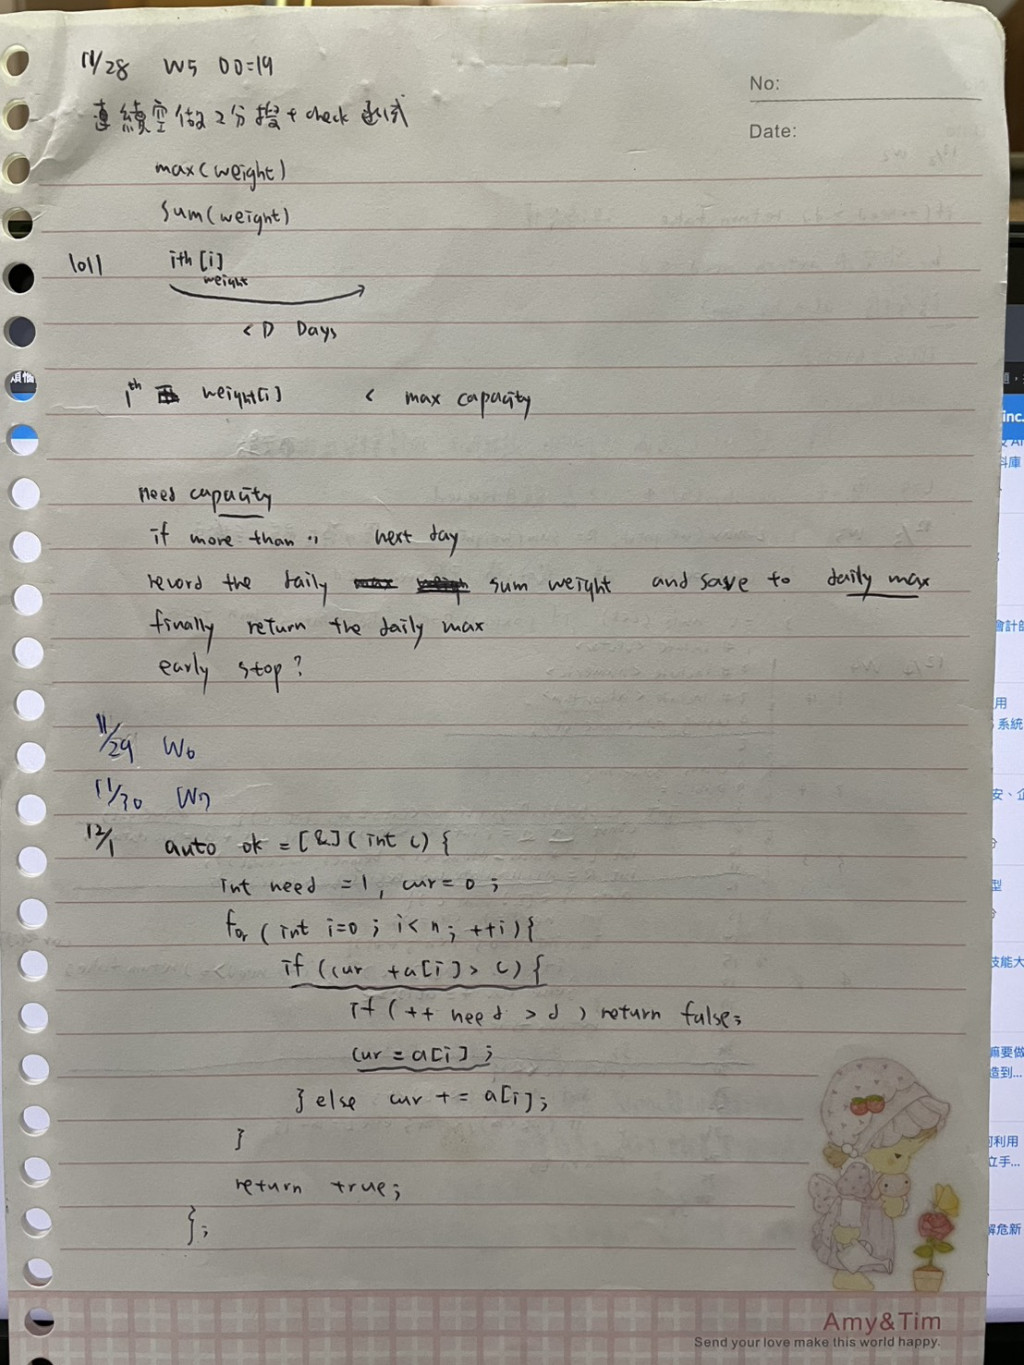 11/28 W5 00:19
連續空做2分搜+check 函式
No:
Date:
max(weight)
sum(weight)
1011 ith[i]
weight
< D Days
ith weight[i] < max capacity
need capacity
if more than .. next day
record the daily sum weight and save to daily max
finally return the daily max
early stop?
11/29 W6
11/30 W7
12/1 auto ok = [&](int c) {
int need = 1, cur = 0;
for (int i=0; i<n; ++i){
if (cur +a[i] > c) {
if (++ need > d) return false;
cur = a[i];
} else cur += a[i];
}
return true;
};
Amy&Tim
Send your love make this world happy.
煩惱
inc.
料庫
會計師
用
系統
安、企
型
技能大
造到...
利用
立手...
解危新